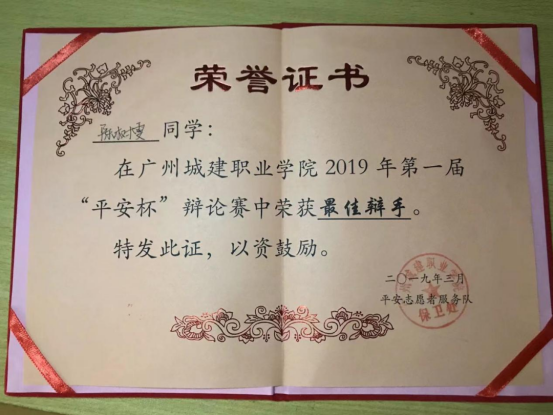 荣誉证书
同学：
在广州城建职业学院 2019 年第一届
“平安杯”辩论赛中荣获最佳辩手。
特发此证，以资鼓励。
二〇一九年三月
平安志愿者服务队
保卫处